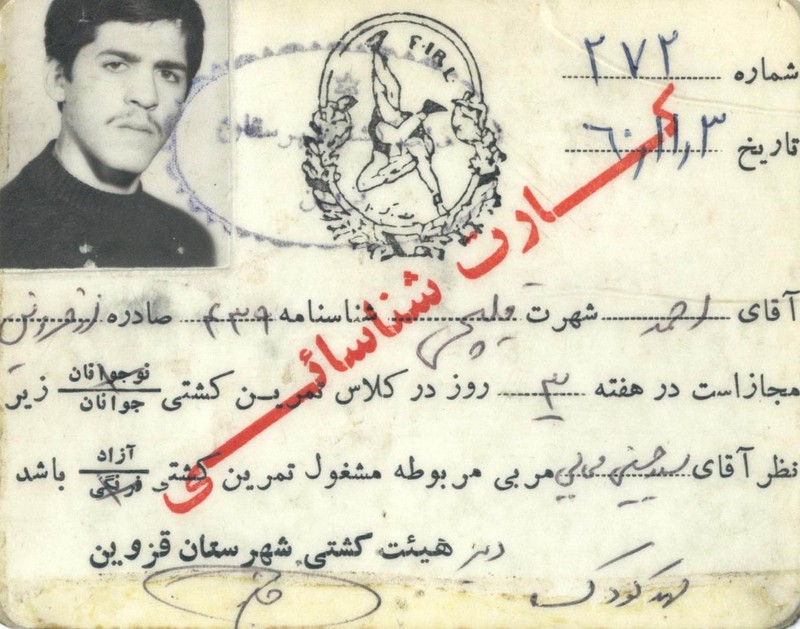 F.I.R.L
شماره ۲۷۲
تاریخ ۶۰،۱۱،۳
کارت شناسائی
آقای احمد شهرت شناسنامه ۴۳۹ صادره از قزوین
مجاز است در هفته ۳ روز در کلاس تمرین کشتی نوجوانان جوانان زیر
نظر آقای سید حسین مربی مربوطه مشغول تمرین کشتی آزاد فرنگی باشد
هیئت کشتی شهرستان قزوین
مهد کودک